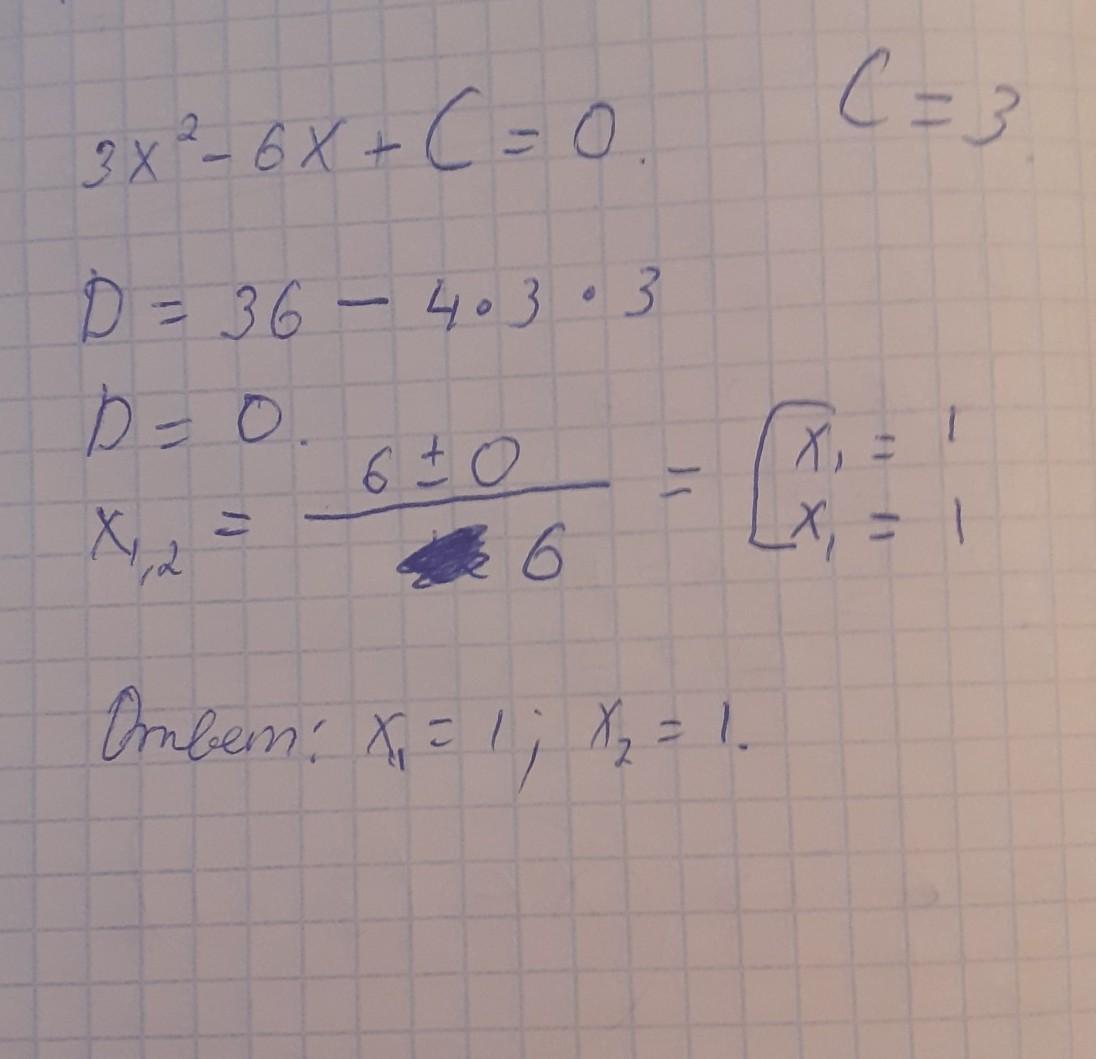 3x² - 6x + C = 0. C = 3
D = 36 — 4·3·3
D = 0.
x₁,₂ = (6 ± 0) / 6 = [ x₁ = 1
x₁ = 1
Ответ: x₁ = 1; x₂ = 1.